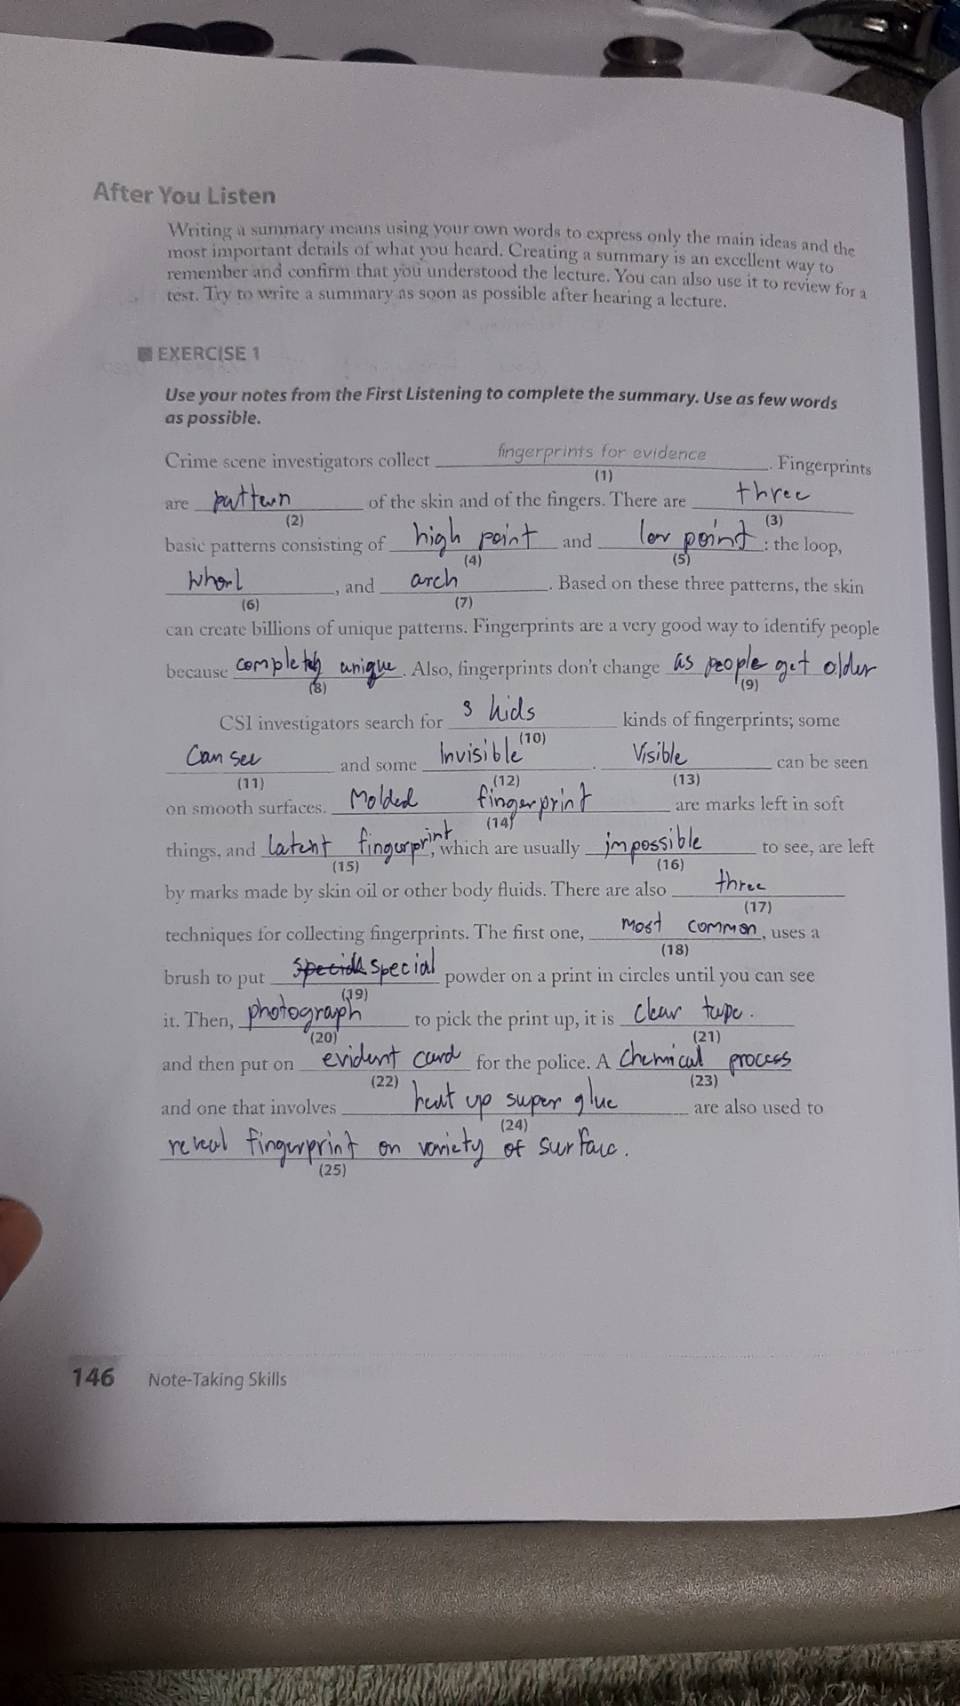 After You Listen
Writing a summary means using your own words to express only the main ideas and the
most important details of what you heard. Creating a summary is an excellent way to
remember and confirm that you understood the lecture. You can also use it to review for a
test. Try to write a summary as soon as possible after hearing a lecture.
EXERCISE 1
Use your notes from the First Listening to complete the summary. Use as few words
as possible.
Crime scene investigators collect fingerprints for evidence. Fingerprints
(1)
are pattern of the skin and of the fingers. There are three
(2) (3)
basic patterns consisting of high point and low point: the loop,
(4) (5)
whorl, and arch. Based on these three patterns, the skin
(6) (7)
can create billions of unique patterns. Fingerprints are a very good way to identify people
because completely unique. Also, fingerprints don't change as people get older
(8) (9)
CSI investigators search for 3 kids kinds of fingerprints; some
(10)
Can see and some Invisible. Visible can be seen
(11) (12) (13)
on smooth surfaces. Molded fingerprint are marks left in soft
(14)
things, and latent fingerprint, which are usually impossible to see, are left
(15) (16)
by marks made by skin oil or other body fluids. There are also three
(17)
techniques for collecting fingerprints. The first one, most common, uses a
(18)
brush to put special powder on a print in circles until you can see
(19)
it. Then, photograph to pick the print up, it is clear tape.
(20) (21)
and then put on evident card for the police. A chemical process
(22) (23)
and one that involves heat up super glue are also used to
(24)
reveal fingerprint on variety of surface.
(25)
146 Note-Taking Skills